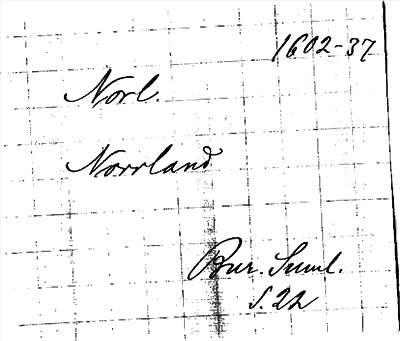 1602-37
Norl.
Norrland
Bur. Suml.
S. 22